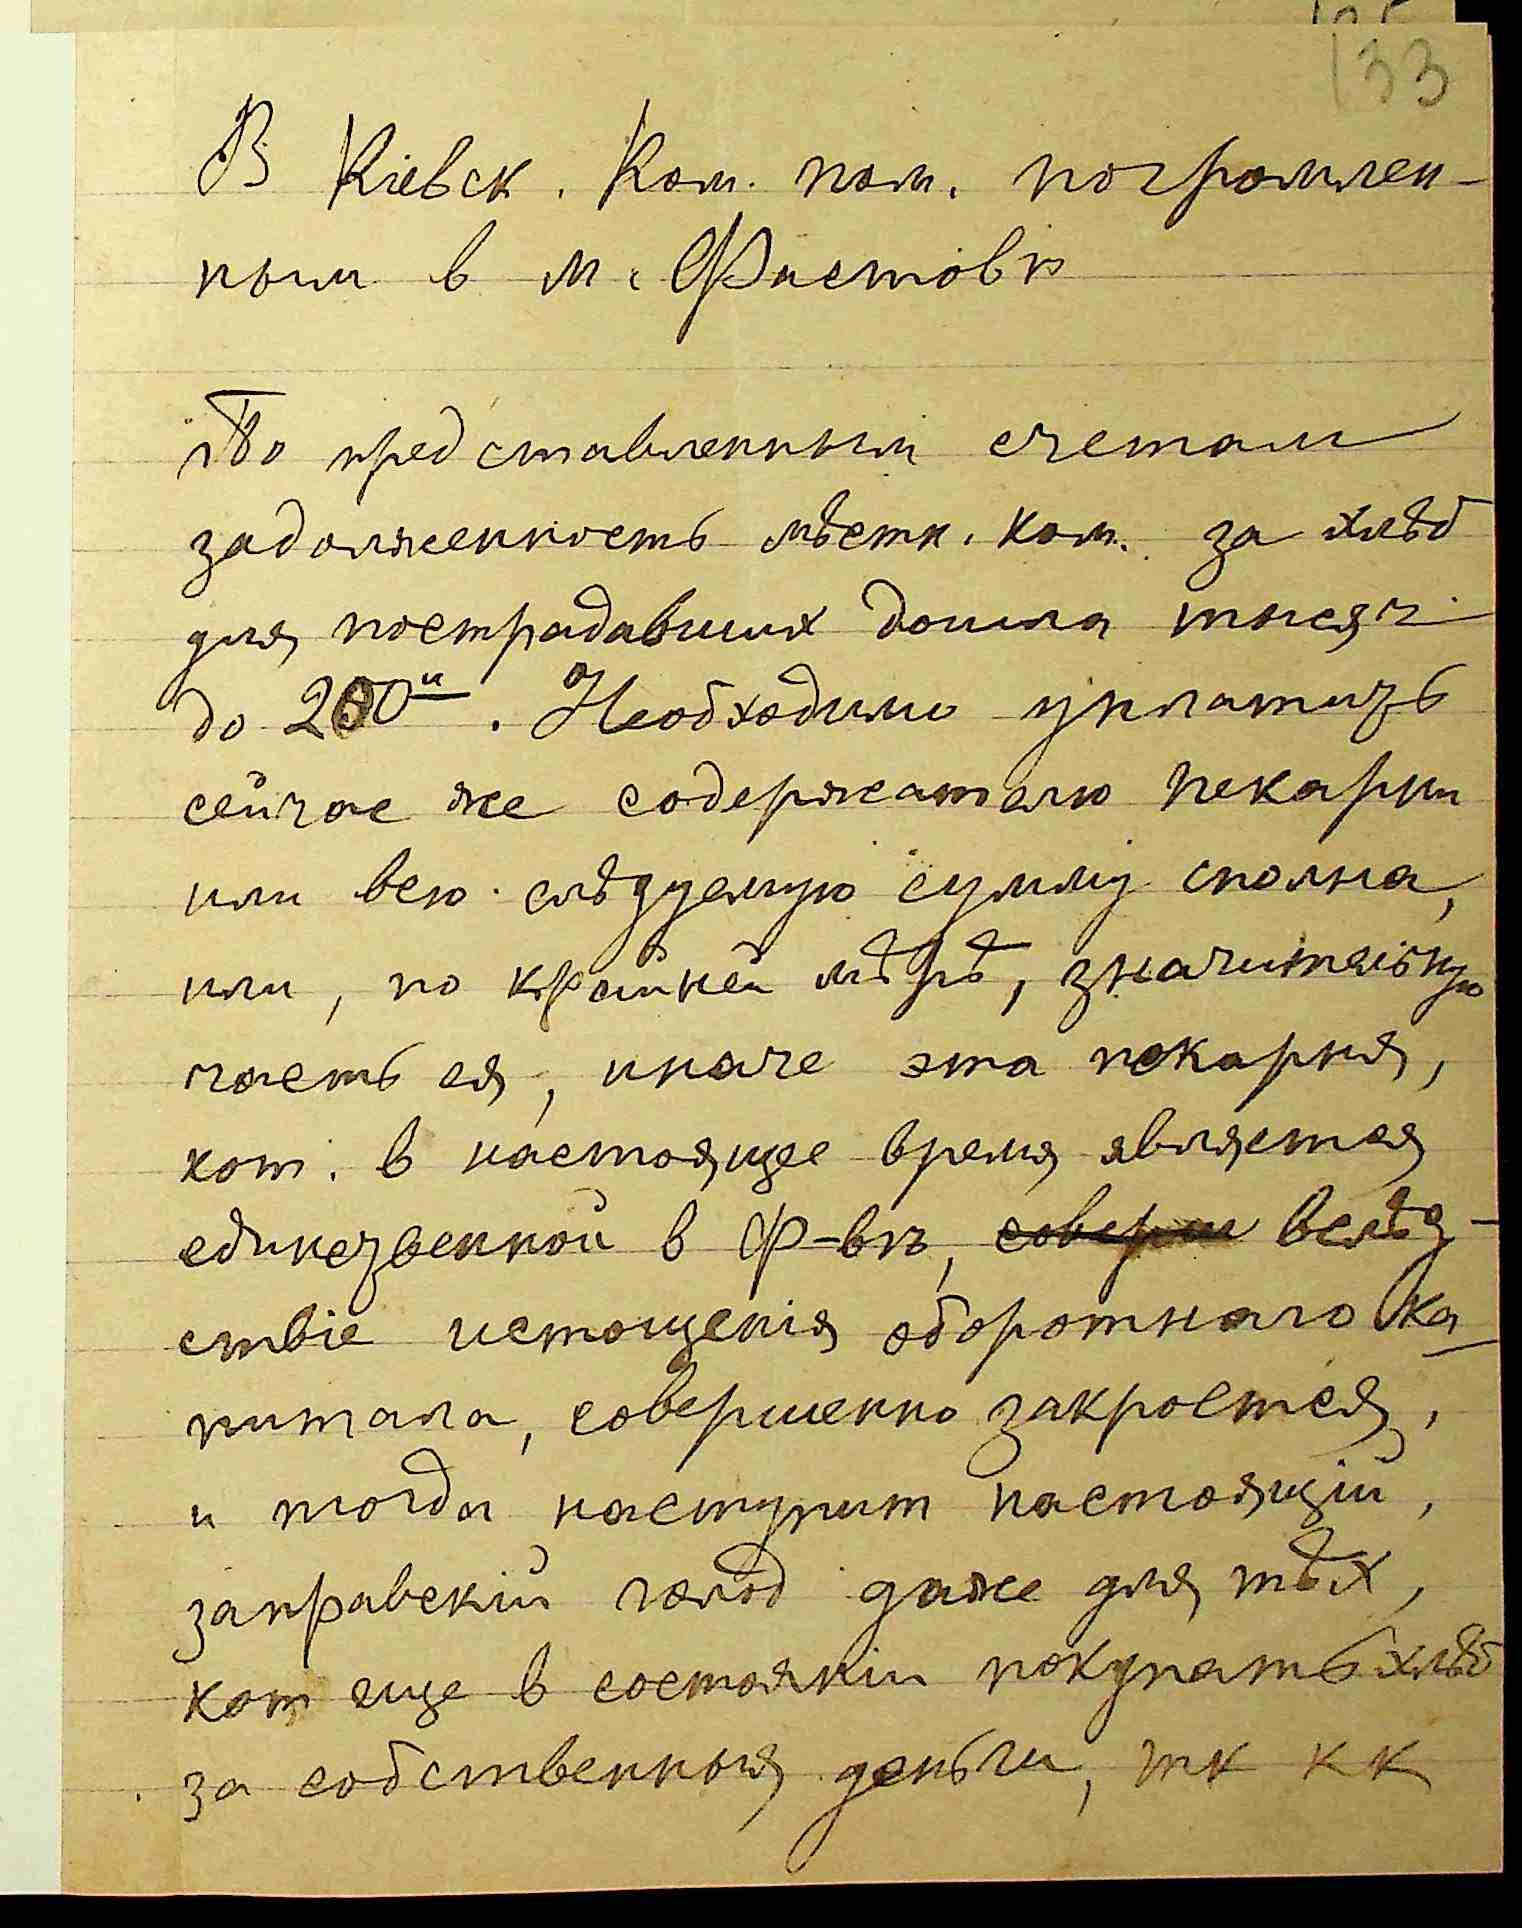 133
В Кіевск. Ком. пом. погромлен-
ным в м. Фастовѣ
По представленным счетам
задолженность мѣстн. ком. за хлѣб
для пострадавших дошла тысяч
до 200и. Необходимо уплатить
сейчас же содержателю пекарни
или всю слѣдуемую сумму сполна,
или, по крайней мѣрѣ, значительную
часть ея, иначе эта пекарня,
кот. в настоящее время является
единственной в Ф-вѣ, соверш вслѣд-
ствіе истощенія оборотнаго ка
питала, совершенно закроется,
и тогда наступит настоящій,
заправскій голод даже для тѣх,
кот еще в состояніи покупать хлѣб
за собственныя деньги, тк кк